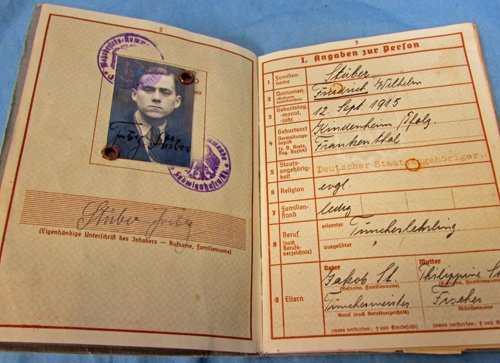 2
Stüber Fritz
(Eigenhändige Unterschrift des Inhabers — Rufname, Familienname)
3
I. Angaben zur Person
1 Familien-
name
Stüber
2 Vornamen
(Rufname
unterstreichen)
Friedrich Wilhelm
3 Geburtstag,
-monat,
-jahr
12. Sept. 1915
4 Geburtsort
Verwaltungs-
bezirk
(z. B. Kreis,
Reg.-Bezirk)
Kindenheim /Pfalz.
Frankenthal
5 Staats-
angehörig-
keit
Deutscher Staatsangehöriger.
6 Religion
evgl.
7 Familien-
stand
ledig
8 Beruf
(nach
Berufs-
verzeichnis)
erlernter Tüncherlehrling
ausgeübter "
9 Eltern
Vater Mutter
Jakob St. Philippine
(Rufname, Familienname) (Rufname, Familienname)
Tünchermeister Fischer
Beruf (nach Berufsverzeichnis) Mädchenname
(wenn verstorben: † und Sterbejahr) (wenn verstorben: † und